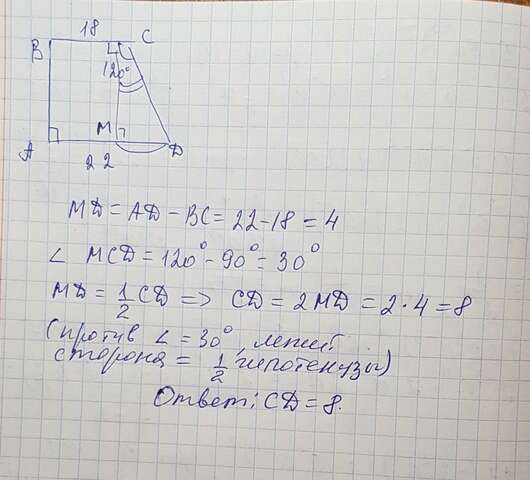 18
B C
120°
M
A D
22
MD = AD - BC = 22 - 18 = 4
∠ MCD = 120° - 90° = 30°
MD = 1/2 CD => CD = 2MD = 2·4 = 8
(против ∠ = 30° лежит
сторона = 1/2 гипотенузы)
Ответ: CD = 8.